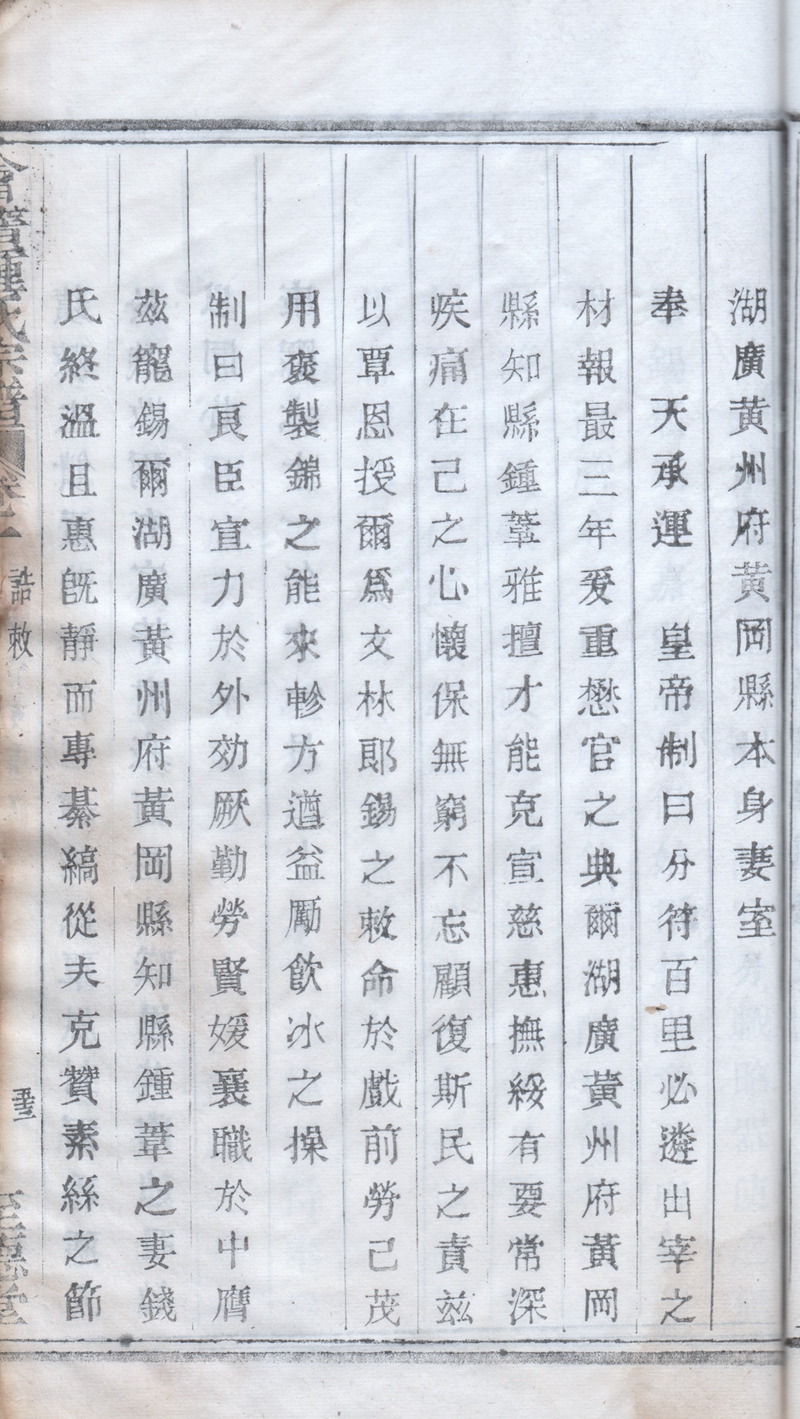 湖廣黃州府黃岡縣本身妻室
奉　天承運　皇帝制曰分符百里必遴出宰之
材報最三年爰重懋官之典爾湖廣黃州府黃岡
縣知縣鍾葦雅擅才能克宣慈惠撫綏有要常深
疾痛在己之心懷保無窮不忘顧復斯民之責兹
以覃恩授爾爲文林郎錫之敕命於戲前勞已茂
用褒製錦之能來軫方遒益勵飲冰之操
制曰良臣宣力於外効厥勤勞賢媛襄職於中膺
兹寵錫爾湖廣黃州府黃岡縣知縣鍾葦之妻錢
氏終溫且惠旣靜而專綦縞從夫克贊素絲之節
會稽鍾氏宗譜 卷一 誥敕